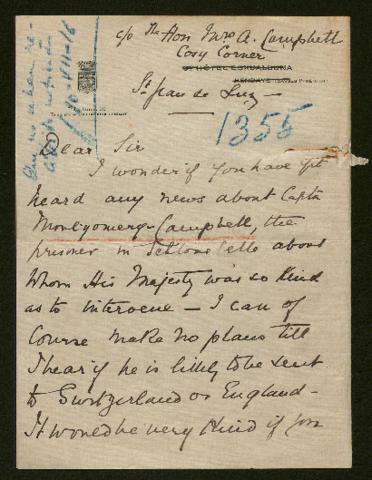 c/o The Hon Mrs A. Campbell
Cosy Corner
HÔTEL ESKUALDUNA
HENDAYE
St Jean de Luz -
1355
10-VII-16
Dear Sir
I wonder if you have yet
heard any news about Captn
Montgomery-Campbell, the
prisoner in about
whom His Majesty was so kind
as to intervene - I can of
course make no plans till
I hear if he is likely to be sent
to Switzerland or England -
It would be very kind if you